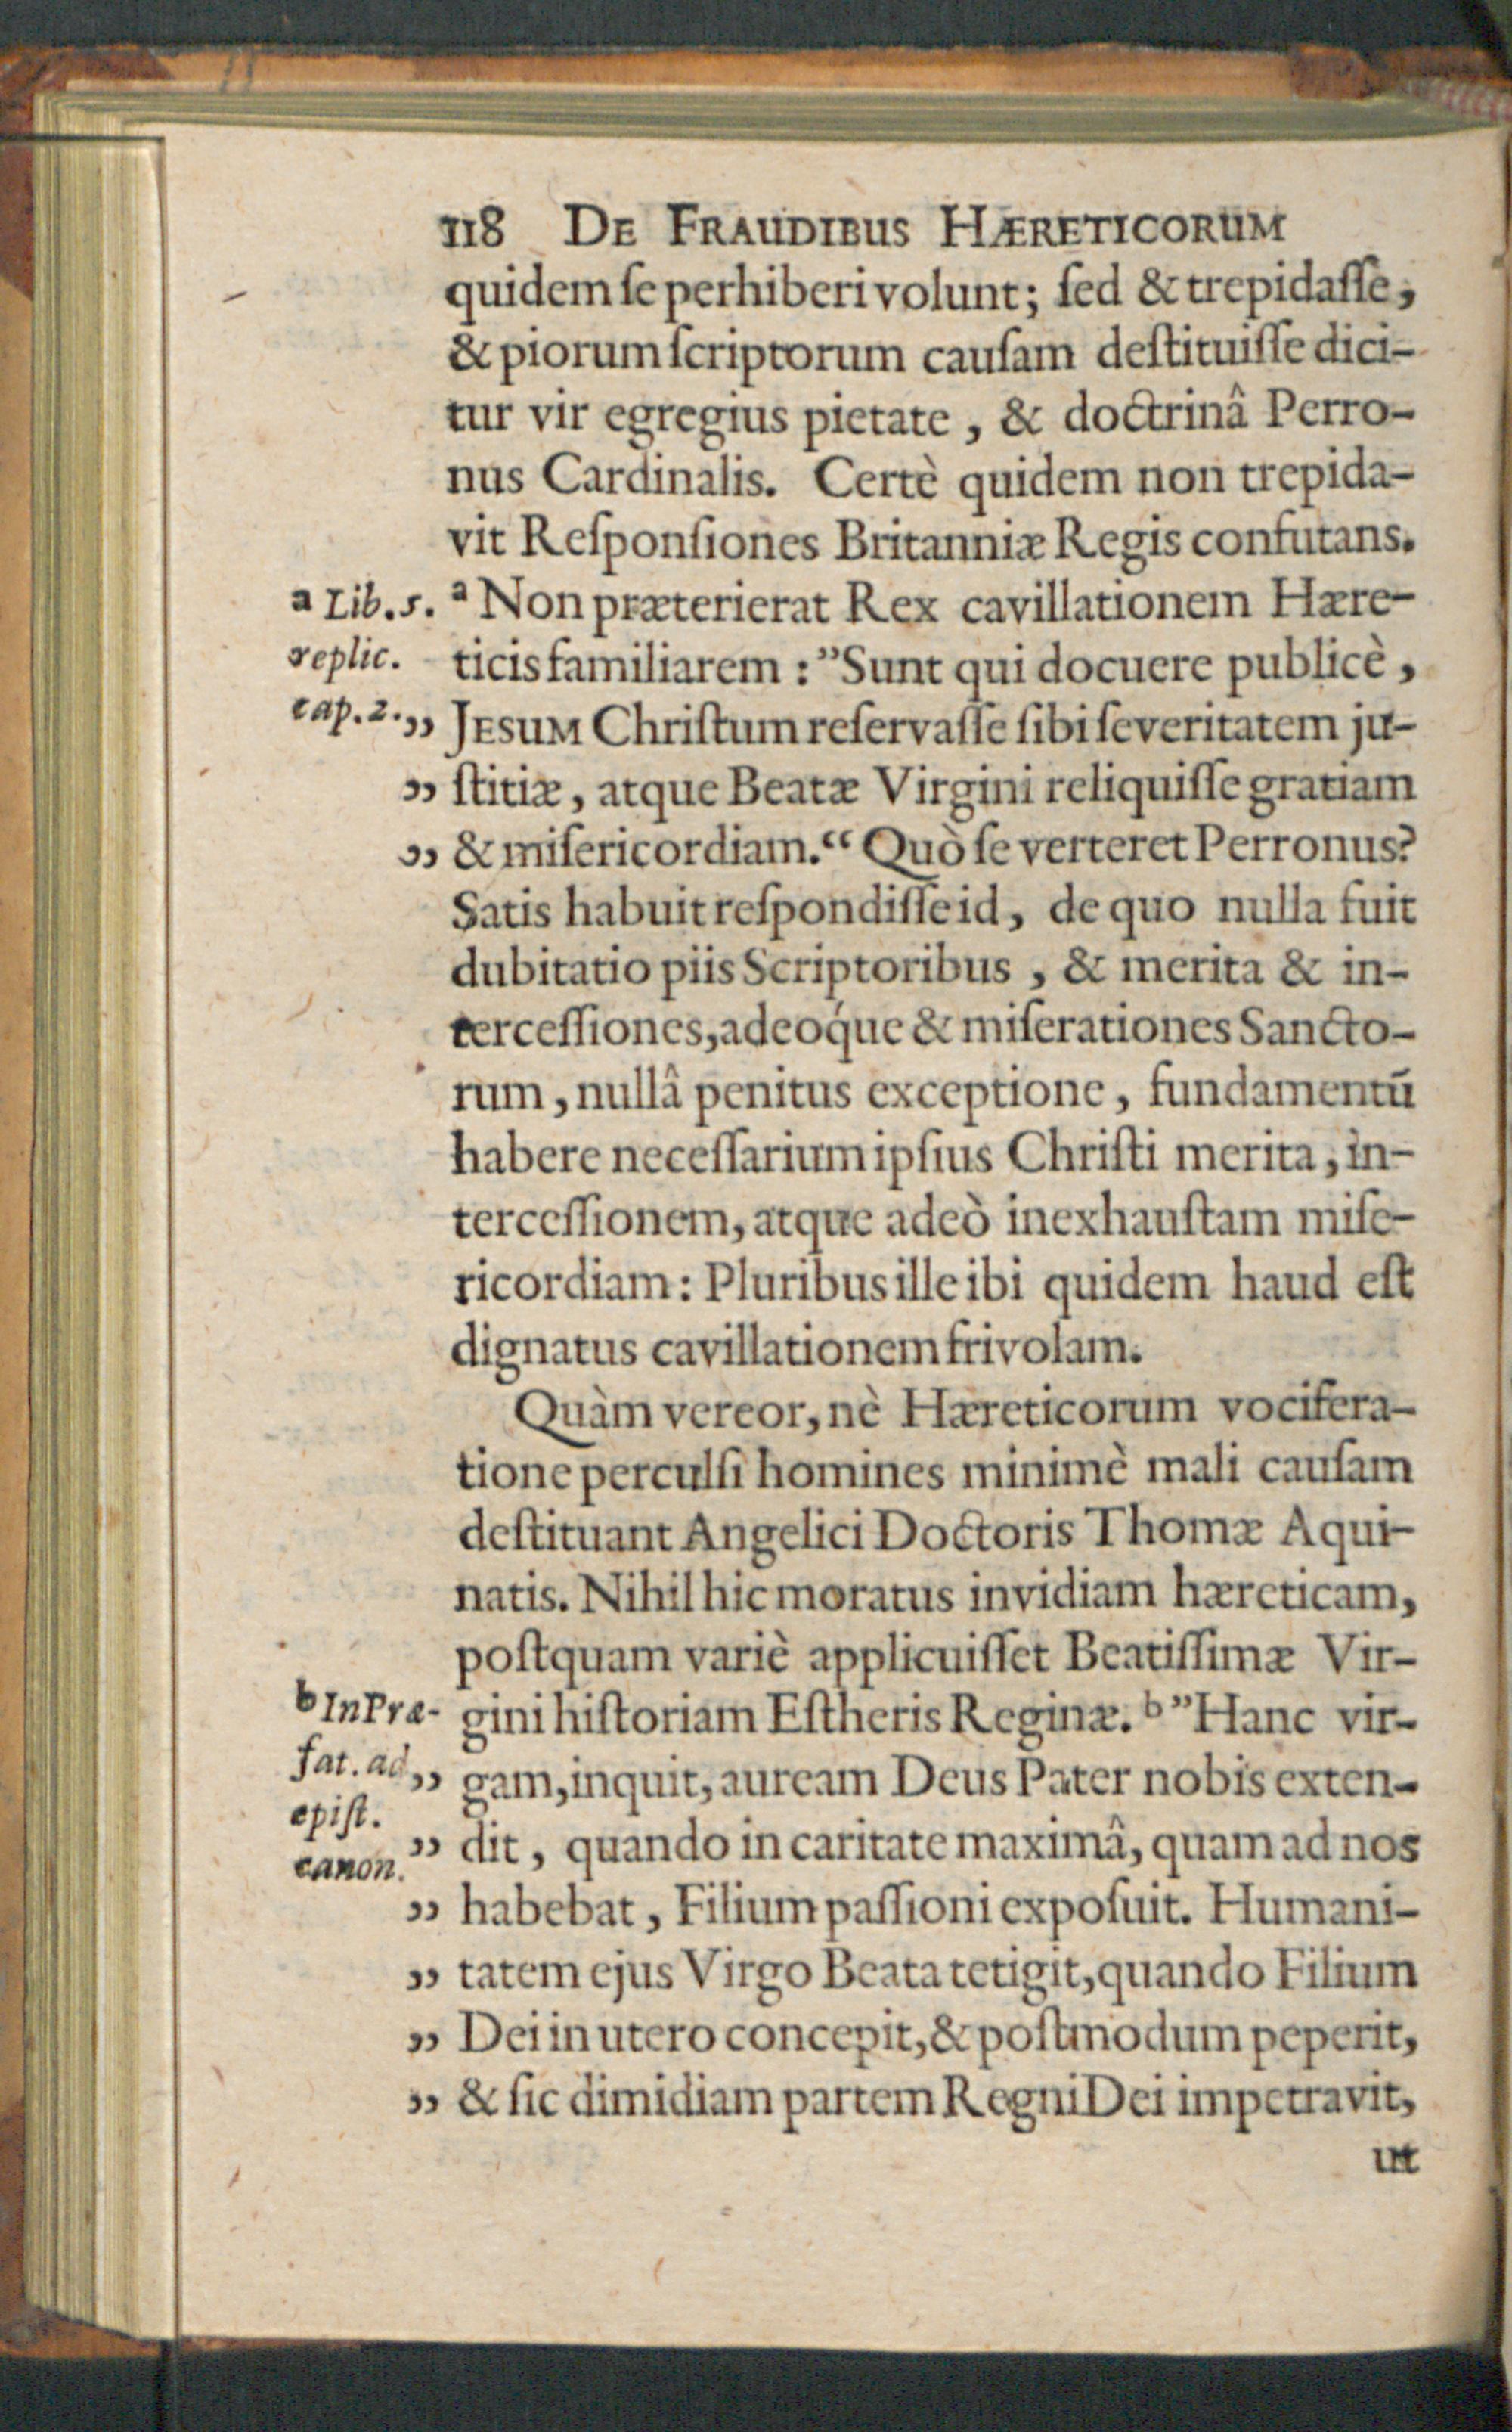 118 DE FRAUDIBUS HÆRETICORUM
quidem ſe perhiberi volunt; ſed & trepidaſſe,
& piorum ſcriptorum cauſam deſtituiſſe dici-
tur vir egregius pietate, & doctrinâ Perro-
nus Cardinalis. Certè quidem non trepida-
vit Reſponſiones Britanniæ Regis confutans.
a Lib. 5. ᵃ Non præterierat Rex cavillationem Hære-
replic. ticis familiarem : ”Sunt qui docuere publicè,
cap. 2. „ JESUM Chriſtum reſervaſſe ſibi ſeveritatem ju-
„ ſtitiæ, atque Beatæ Virgini reliquiſſe gratiam
„ & miſericordiam.“ Quò ſe verteret Perronus?
Satis habuit reſpondiſſe id, de quo nulla fuit
dubitatio piis Scriptoribus, & merita & in-
terceſſiones, adeoq́ue & miſerationes Sancto-
rum, nullâ penitus exceptione, fundamentū
habere neceſſarium ipſius Chriſti merita, in-
terceſſionem, atque adeò inexhauſtam miſe-
ricordiam: Pluribus ille ibi quidem haud eſt
dignatus cavillationem frivolam.
Quàm vereor, nè Hæreticorum vocifera-
tione perculſi homines minimè mali cauſam
deſtituant Angelici Doctoris Thomæ Aqui-
natis. Nihil hic moratus invidiam hæreticam,
poſtquam variè applicuiſſet Beatiſſimæ Vir-
b In Præ- gini hiſtoriam Eſtheris Reginæ. ᵇ ”Hanc vir-
fat. ad „ gam, inquit, auream Deus Pater nobis exten-
epiſt.
canon. „ dit, quando in caritate maximâ, quam ad nos
„ habebat, Filium paſſioni expoſuit. Humani-
„ tatem ejus Virgo Beata tetigit, quando Filium
„ Dei in utero concepit, & poſtmodum peperit,
„ & ſic dimidiam partem Regni Dei impetravit,
ut